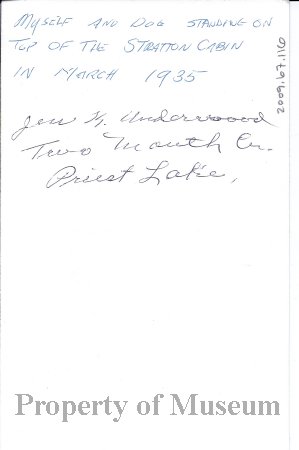 MYSELF AND DOG STANDING ON
TOP OF THE STRATTON CABIN
IN MARCH 1935
2009.67.116
Underwood
Two Mouth Cr.
Priest Lake,
Property of Museum